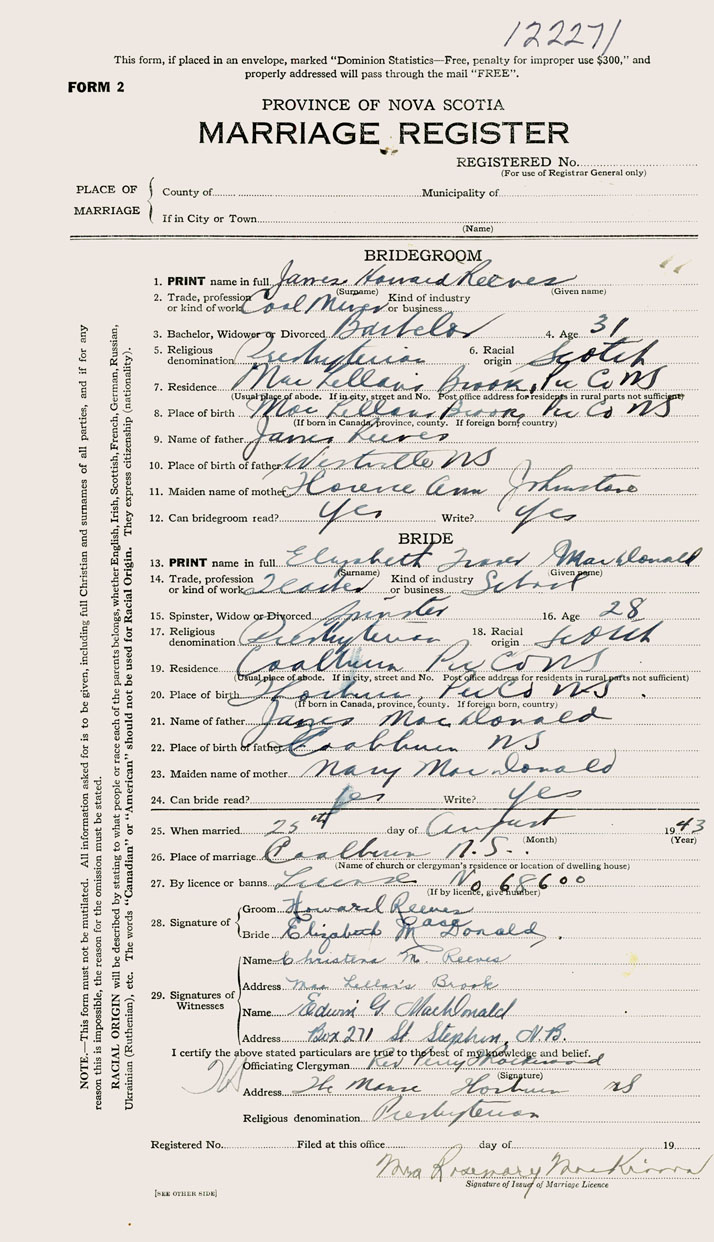 122271
This form, if placed in an envelope, marked "Dominion Statistics—Free, penalty for improper use $300," and
properly addressed will pass through the mail "FREE".
FORM 2
PROVINCE OF NOVA SCOTIA
MARRIAGE REGISTER
REGISTERED No.
(For use of Registrar General only)
PLACE OF MARRIAGE
County of Municipality of
If in City or Town
(Name)
BRIDEGROOM
1. PRINT name in full James Howard Reeves
(Surname) (Given name)
2. Trade, profession or kind of work Coal Miner Kind of industry or business
3. Bachelor, Widower or Divorced Bachelor 4. Age 31
5. Religious denomination Presbyterian 6. Racial origin Scotch
7. Residence MacLellan's Brook, Pic Co NS
(Usual place of abode. If in city, street and No. Post office address for residents in rural parts not sufficient)
8. Place of birth MacLellan's Brook, Pic Co NS
(If born in Canada, province, county. If foreign born, country)
9. Name of father James Reeves
10. Place of birth of father Westville NS
11. Maiden name of mother Florence Ann Johnstone
12. Can bridegroom read? Yes Write? Yes
BRIDE
13. PRINT name in full Elizabeth MacDonald
(Surname) (Given name)
14. Trade, profession or kind of work Teacher Kind of industry or business School
15. Spinster, Widow or Divorced Spinster 16. Age 28
17. Religious denomination Presbyterian 18. Racial origin Scotch
19. Residence Coalburn Pic Co NS
(Usual place of abode. If in city, street and No. Post office address for residents in rural parts not sufficient)
20. Place of birth Thorburn, Pic Co NS.
(If born in Canada, province, county. If foreign born, country)
21. Name of father James MacDonald
22. Place of birth of father Coalburn NS
23. Maiden name of mother Mary MacDonald
24. Can bride read? Yes Write? Yes
25. When married 25th day of August 1943
(Month) (Year)
26. Place of marriage Coalburn N.S.
(Name of church or clergyman's residence or location of dwelling house)
27. By licence or banns License No 68600
(If by licence, give number)
28. Signature of
Groom Howard Reeves
Bride Elizabeth McDonald.
29. Signatures of Witnesses
Name Christena M. Reeves
Address MacLellan's Brook
Name Edwin G. MacDonald
Address Box 271 St. Stephen, N.B.
I certify the above stated particulars are true to the best of my knowledge and belief.
Officiating Clergyman Rev Perry
(Signature)
Address The Manse Thorburn NS
Religious denomination Presbyterian
Registered No. Filed at this office day of 19
Mrs Rosemary MacKinnon
Signature of Issuer of Marriage Licence
[SEE OTHER SIDE]
NOTE.—This form must not be mutilated. All information asked for is to be given, including full Christian and surnames of all parties, and if for any
reason this is impossible, the reason for the omission must be stated.
RACIAL ORIGIN will be described by stating to what people or race each of the parents belongs, whether English, Irish, Scottish, French, German, Russian,
Ukrainian (Ruthenian), etc. The words "Canadian" or "American" should not be used for Racial Origin. They express citizenship (nationality).